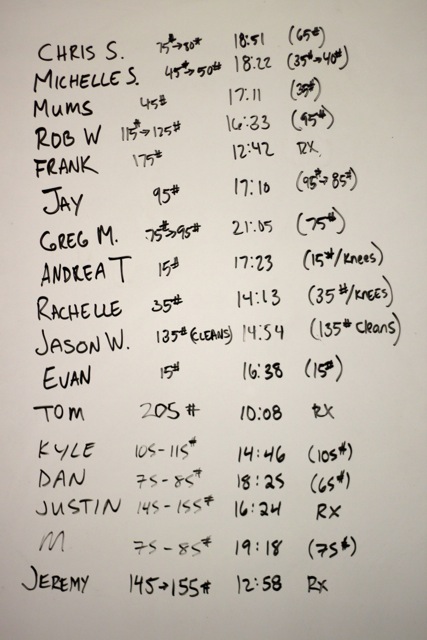 CHRIS S. 75#→80# 18:51 (65#)
MICHELLE S. 45#→50# 18:22 (35#→40#)
MUMS 45# 17:11 (35#)
ROB W 115#→125# 16:33 (95#)
FRANK 175# 12:42 RX
JAY 95# 17:10 (95#→85#)
GREG M. 75#→95# 21:05 (75#)
ANDREA T 15# 17:23 (15#/Knees)
RACHELLE 35# 14:13 (35#/KNEES)
JASON W. 135# (CLEANS) 14:54 (135# Cleans)
EVAN 15# 16:38 (15#)
TOM 205# 10:08 RX
KYLE 105-115# 14:46 (105#)
DAN 75-85# 18:25 (65#)
JUSTIN 145-155# 16:24 RX
M 75-85# 19:18 (75#)
JEREMY 145→155# 12:58 Rx